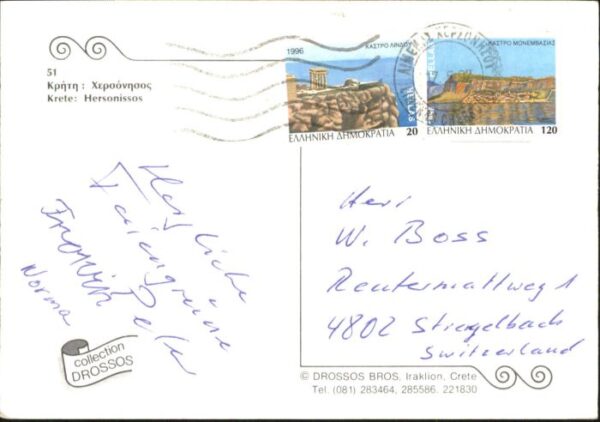 51
Κρήτη : Χερσόνησος
Krete: Hersonissos
1996
ΚΑΣΤΡΟ ΛΙΝΔΟΥ
HELLAS
ΕΛΛΗΝΙΚΗ ΔΗΜΟΚΡΑΤΙΑ 20
ΚΑΣΤΡΟ ΜΟΝΕΜΒΑΣΙΑΣ
HELLAS
ΕΛΛΗΝΙΚΗ ΔΗΜΟΚΡΑΤΙΑ 120
Herzliche
Feriengrüsse
Norma
Herr
W. Boss
Reutermattweg 1
4802 Strengelbach
Switzerland
collection
DROSSOS
© DROSSOS BROS, Iraklion, Crete
Tel. (081) 283464, 285586, 221830